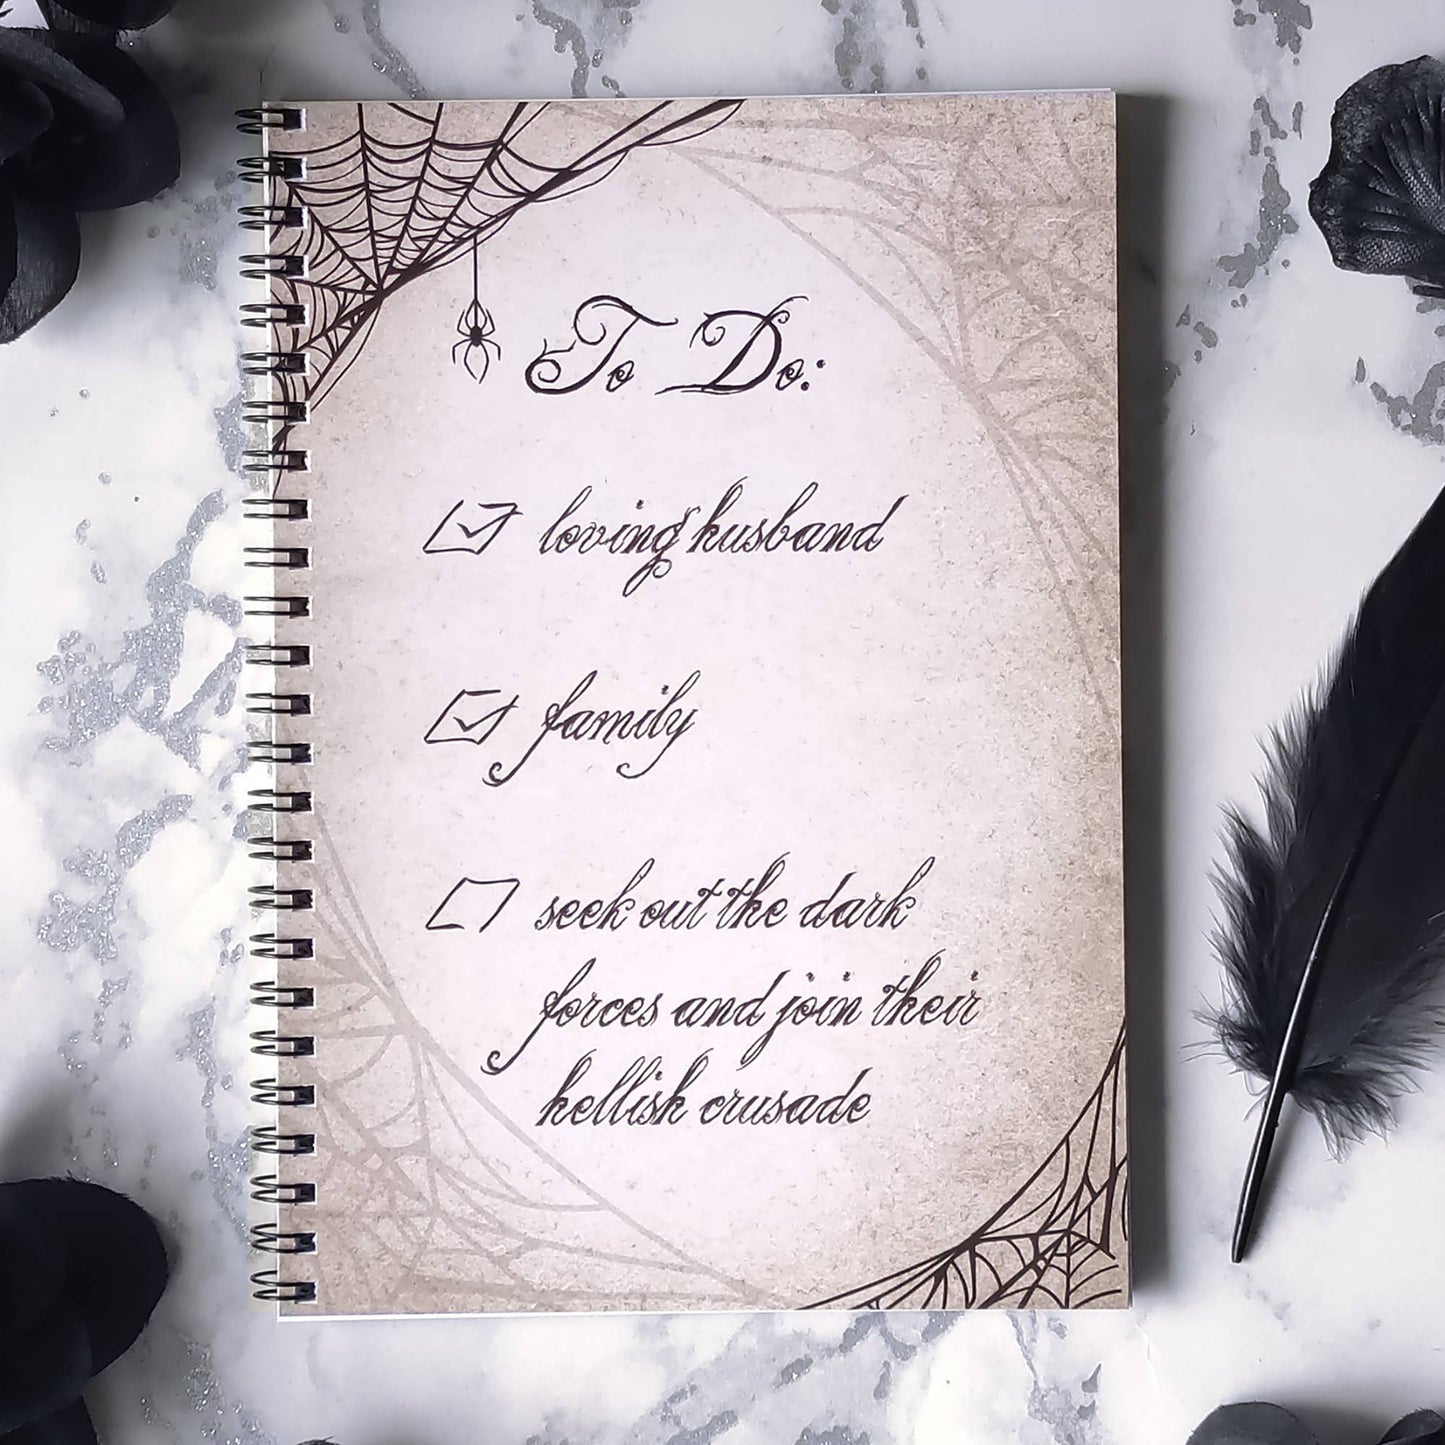 To Do:
loving husband
family
seek out the dark
forces and join their
hellish crusade